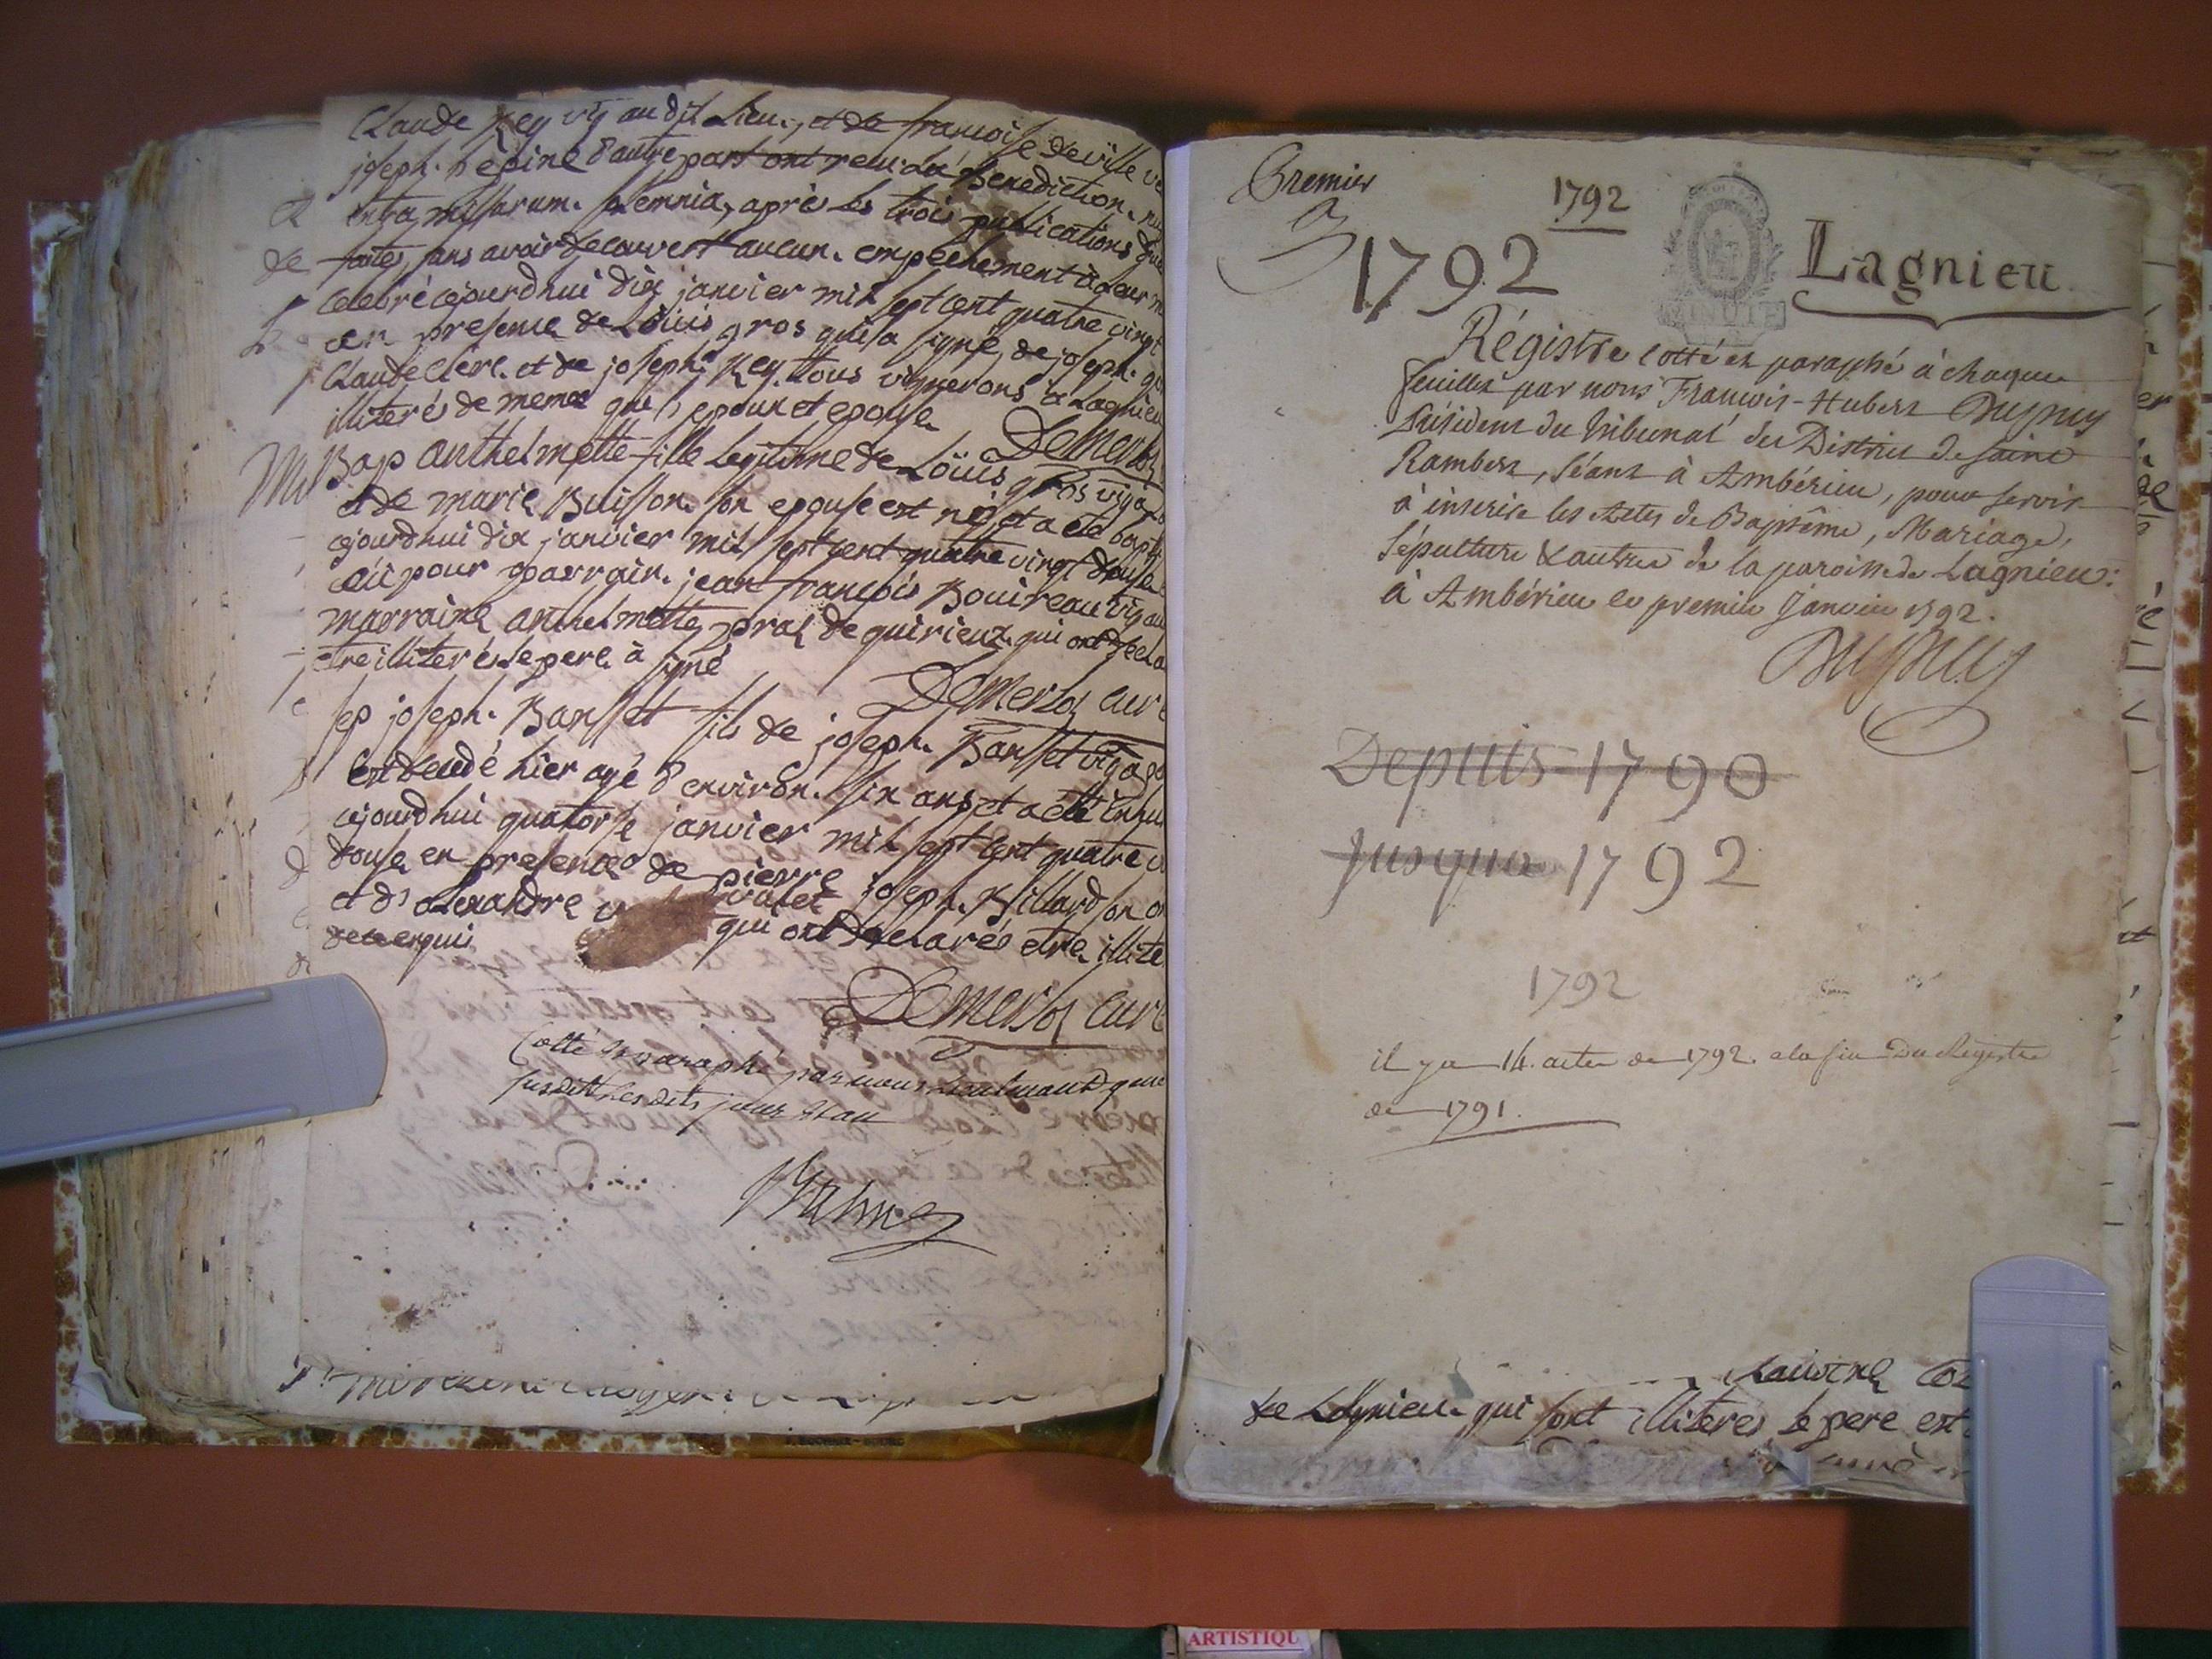 Claude Rey vig au dit Lieu, et de francoise deville ve
joseph. depine d'autre part ont recu la Benediction. nu
intra missarum. solemnia, après les trois publications due
faites, sans avoir decouvert aucun. empechement à leur m
celebré cejourdhui dix janvier mil sept cent quatre vingt
en presence de Loüis gros qui a signé, de joseph.
Claude clerc. et de joseph. Rey. tous vignerons à Lagnieu
illiterés de meme que l'epoux et epouse
Demerloz
Bap anthelmette fille legitime de Loüis gros vig a
et de marie Buisson. son epouse est né et a eté bapti
cejourdhui dix janvier mil sept cent quatre vingt douse
eü pour parrain. jean françois Bouireau vig au
marraine anthelmette pral de quirieux. qui ont decla
etre illiterés le pere à signé
Demerloz curé
sep joseph. Bansset fils de joseph. Bansset vig a
est decedé hier agé d'environ. six ans et a eté inhu
cejourdhui quatorse janvier mil sept cent quatre v
douse en presence de pierre joseph. Billard son
et d'alexandre vulet qui ont declarés etre illite
de ce enquis
Demerloz curé
Cotté et paraphé par nous
susdit lesdits jour et an
Premier
1792
1792
Lagnieu.
MINUTE
Régistre cotté et paraphé à chaque
feuillet par nous François-Hubert Dupuy
Président du tribunal du District de saint
Rambert, séant à Ambérieu, pour servir
à inscrire les Actes de Baptême, Mariage,
Sépulture & autres de la paroisse de Lagnieu:
à Ambérieu le premier Janvier 1792.
Dupuy
Depuis 1790
Jusqua 1792
1792
il y a 14. actes de 1792. a la fin du Registre
de 1791.
de Lagnieu. qui sont illiteres le pere est
ARTISTIQU